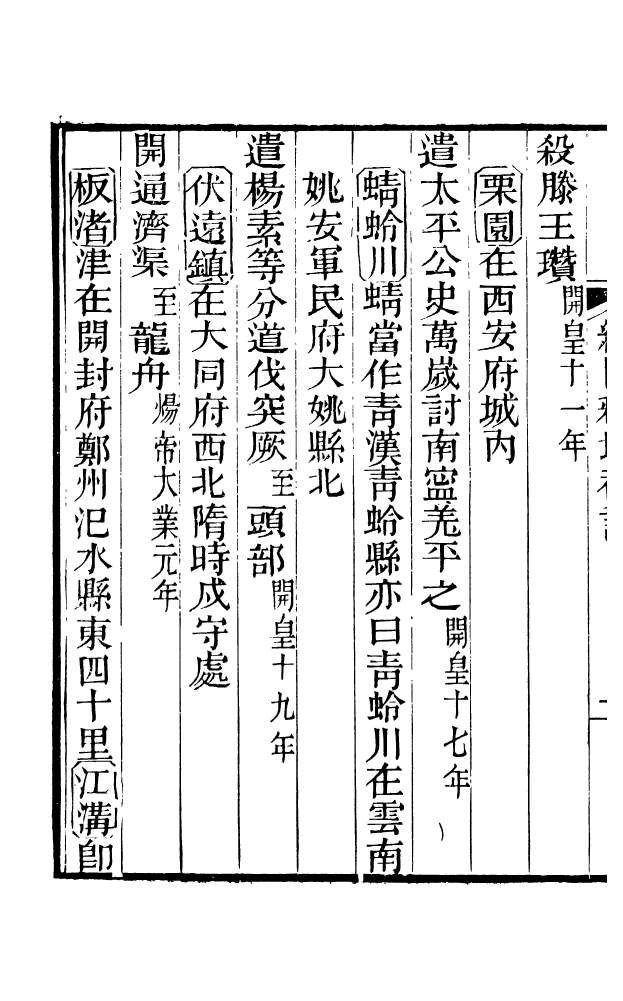 殺滕王瓚開皇十一年
栗園在西安府城內
遣太平公史萬歲討南寧羌平之開皇十七年
蜻蛉川蜻當作青漢青蛉縣亦曰青蛉川在雲南
姚安軍民府大姚縣北
遣楊素等分道伐突厥至頭部開皇十九年
伏遠鎮在大同府西北隋時戍守處
開通濟渠至龍舟煬帝大業元年
板渚津在開封府鄭州汜水縣東四十里江溝即